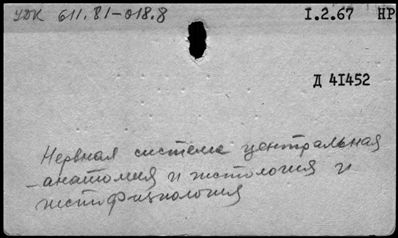 УДК 611.81-018.8
I.2.67 НР
Д 4I452
Нервная система центральная
-анатомия и гистология и
гистофизиология